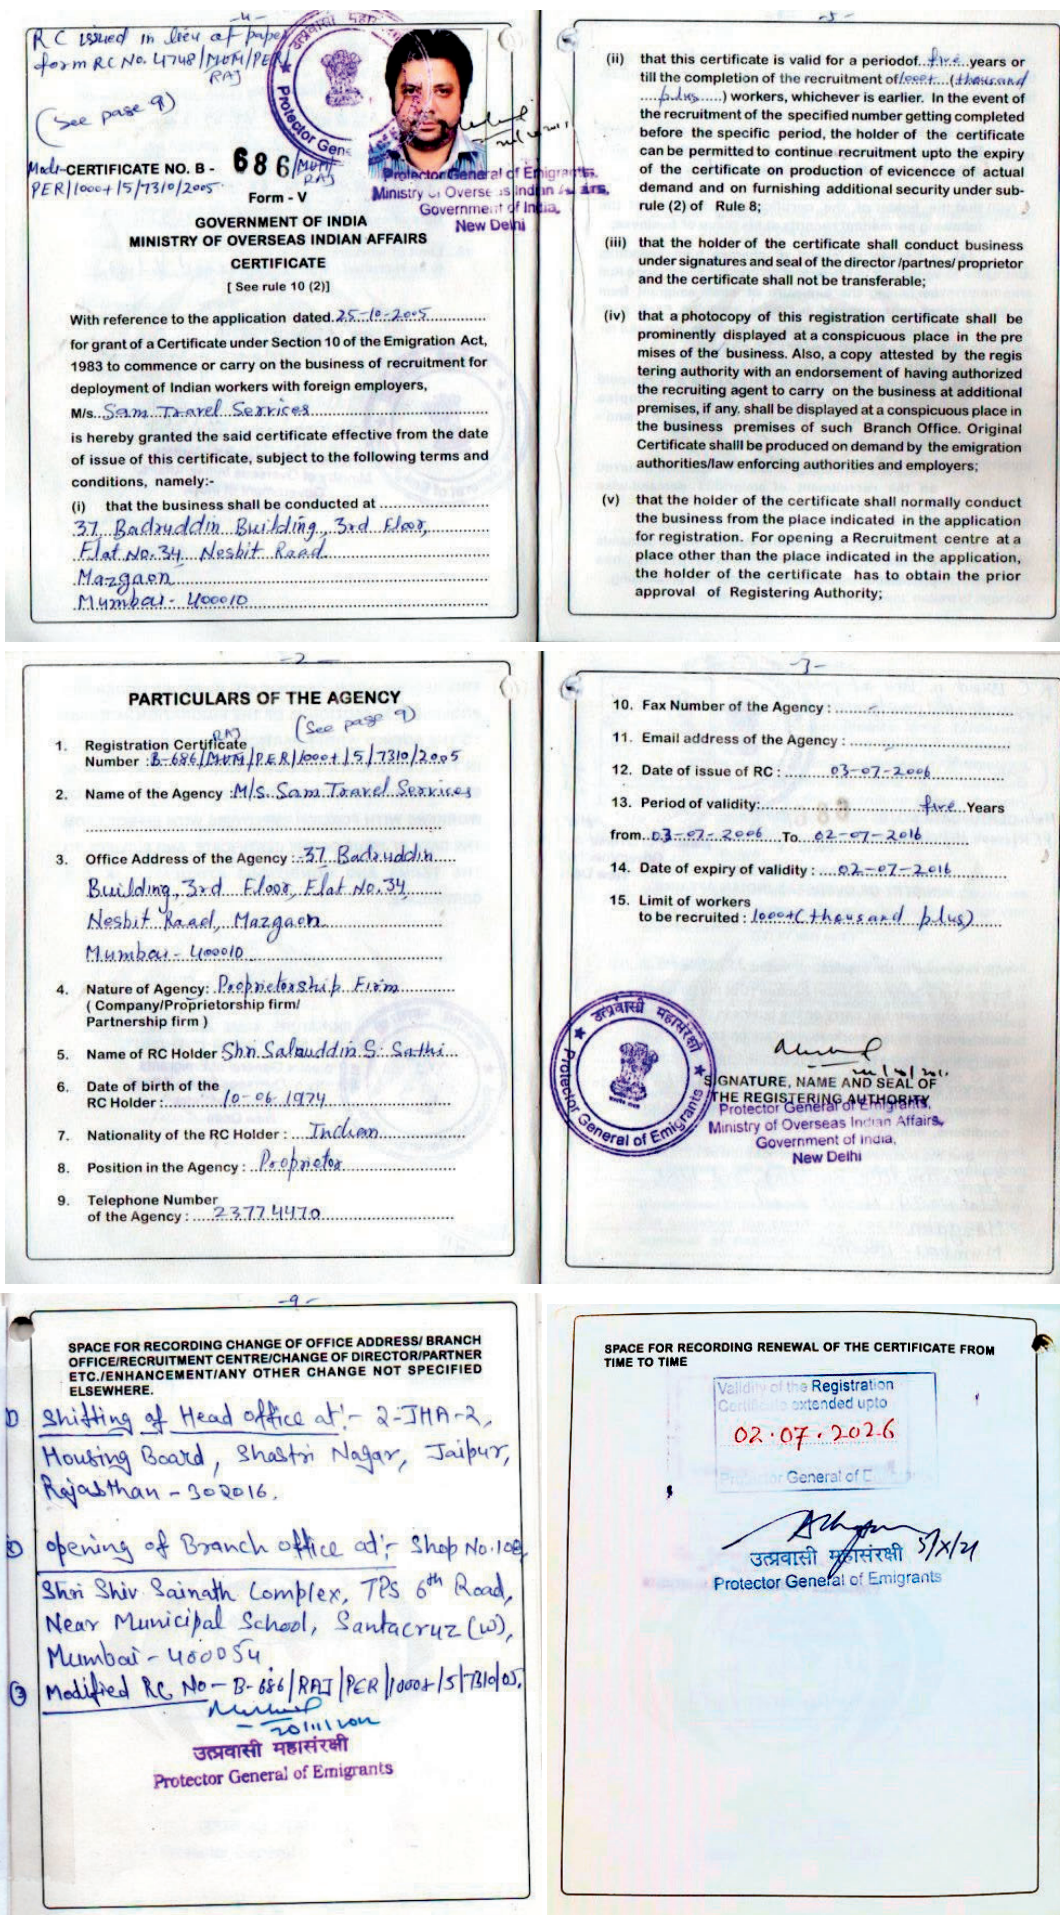 -4-
RC issued in lieu of paper
form RC No. 4748/MUM/PER/
RAJ
(See page 9)
उत्प्रवासी महा
Protector Gene
CERTIFICATE NO. B - 686/MUM/
RAJ
PER/1000+/5/7310/2005
Protector General of Emigrants,
Ministry of Overseas Indian Affairs,
Government of India,
New Delhi
Form - V
GOVERNMENT OF INDIA
MINISTRY OF OVERSEAS INDIAN AFFAIRS
CERTIFICATE
[ See rule 10 (2)]
With reference to the application dated. 25-10-2005
for grant of a Certificate under Section 10 of the Emigration Act,
1983 to commence or carry on the business of recruitment for
deployment of Indian workers with foreign employers,
M/s. Sam Travel Services
is hereby granted the said certificate effective from the date
of issue of this certificate, subject to the following terms and
conditions, namely:-
(i) that the business shall be conducted at
37, Badruddin Building, 3rd Floor,
Flat No. 34, Nesbit Road
Mazgaon
Mumbai - 400010
-5-
(ii) that this certificate is valid for a periodof..five..years or
till the completion of the recruitment of 1000+ (thousand
plus) workers, whichever is earlier. In the event of
the recruitment of the specified number getting completed
before the specific period, the holder of the certificate
can be permitted to continue recruitment upto the expiry
of the certificate on production of evicencce of actual
demand and on furnishing additional security under sub-
rule (2) of Rule 8;
(iii) that the holder of the certificate shall conduct business
under signatures and seal of the director /partnes/ proprietor
and the certificate shall not be transferable;
(iv) that a photocopy of this registration certificate shall be
prominently displayed at a conspicuous place in the pre
mises of the business. Also, a copy attested by the regis
tering authority with an endorsement of having authorized
the recruiting agent to carry on the business at additional
premises, if any, shall be displayed at a conspicuous place in
the business premises of such Branch Office. Original
Certificate shalll be produced on demand by the emigration
authorities/law enforcing authorities and employers;
(v) that the holder of the certificate shall normally conduct
the business from the place indicated in the application
for registration. For opening a Recruitment centre at a
place other than the place indicated in the application,
the holder of the certificate has to obtain the prior
approval of Registering Authority;
-2-
PARTICULARS OF THE AGENCY
(See page 9)
RAJ
1. Registration Certificate
Number : B-686/MUM/PER/1000+/5/7310/2005
2. Name of the Agency : M/s. Sam Travel Services
3. Office Address of the Agency : - 37, Badruddin
Building, 3rd Floor, Flat No. 34
Nesbit Road, Mazgaon
Mumbai - 400010
4. Nature of Agency: Proprietorship Firm
( Company/Proprietorship firm/
Partnership firm )
5. Name of RC Holder Shri Salauddin S. Sathi
6. Date of birth of the
RC Holder : 10-06-1974
7. Nationality of the RC Holder : Indian
8. Position in the Agency : Proprietor
9. Telephone Number
of the Agency : 23774470
-3-
10. Fax Number of the Agency :
11. Email address of the Agency :
12. Date of issue of RC : 03-07-2006
13. Period of validity: five Years
from 03-07-2006 To 02-07-2016
14. Date of expiry of validity : 02-07-2016
15. Limit of workers
to be recruited : 1000+ (thousand plus)
उत्प्रवासी महासंरक्षी
Protector General of Emigrants
SIGNATURE, NAME AND SEAL OF
THE REGISTERING AUTHORITY
Protector General of Emigrants,
Ministry of Overseas Indian Affairs,
Government of India,
New Delhi
-9-
SPACE FOR RECORDING CHANGE OF OFFICE ADDRESS/ BRANCH
OFFICE/RECRUITMENT CENTRE/CHANGE OF DIRECTOR/PARTNER
ETC./ENHANCEMENT/ANY OTHER CHANGE NOT SPECIFIED
ELSEWHERE.
① Shifting of Head office at :- 2-JHA-2,
Housing Board, Shastri Nagar, Jaipur,
Rajasthan - 302016.
② opening of Branch office at :- Shop No. 108,
Shri Shiv Sainath Complex, TPS 6th Road,
Near Municipal School, Santacruz (W),
Mumbai - 400054.
③ Modified RC No - B-686/RAJ/PER/1000+/5/7310/05.
उत्प्रवासी महासंरक्षी
Protector General of Emigrants
SPACE FOR RECORDING RENEWAL OF THE CERTIFICATE FROM
TIME TO TIME
Validity of the Registration
Certificate extended upto
02.07.2026
Protector General of E
5/X/21
उत्प्रवासी महासंरक्षी
Protector General of Emigrants